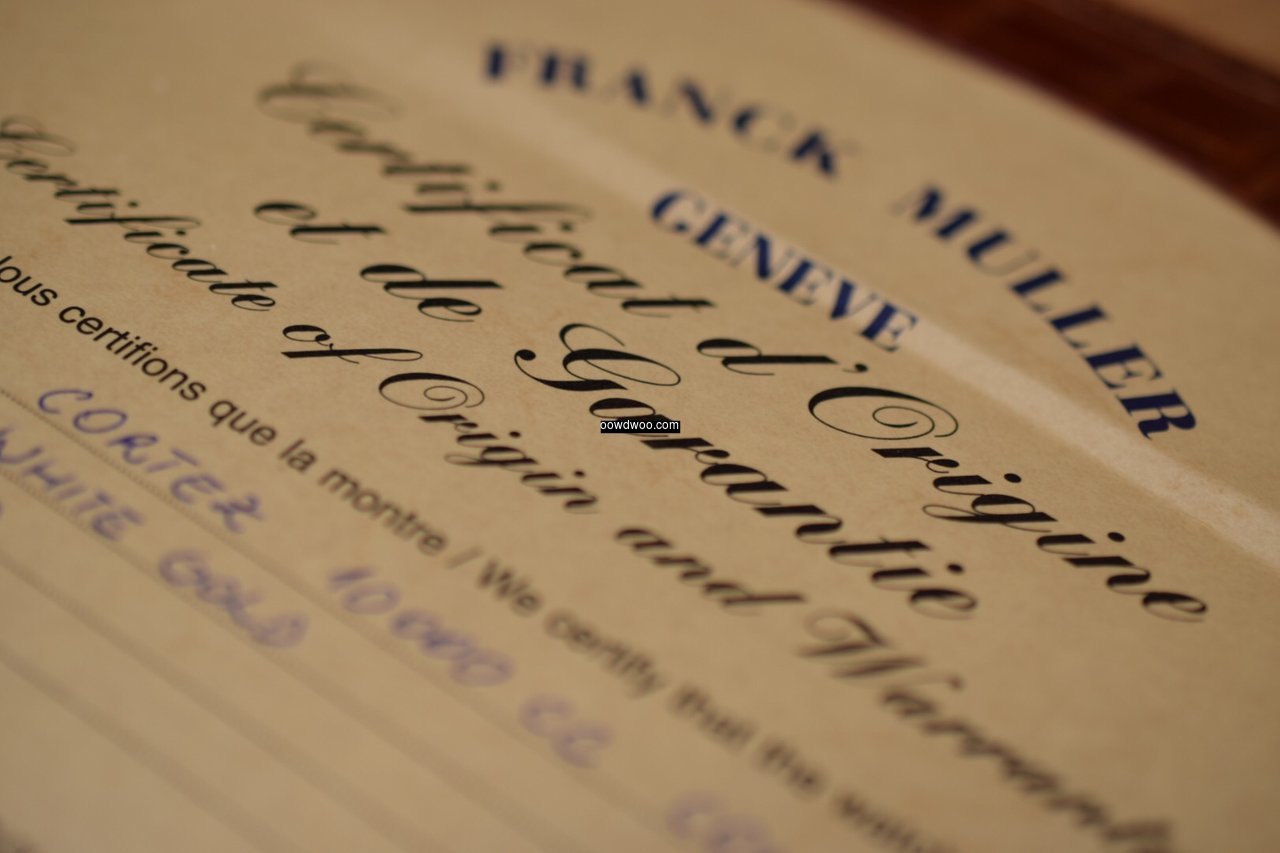 FRANCK MULLER
GENEVE
Certificat d'Origine
et de Garantie
Certificate of Origin and Warranty
Nous certifions que la montre / We certify that the watch
CORTEZ 10 000 CC
WHITE GOLD
oowdwoo.com